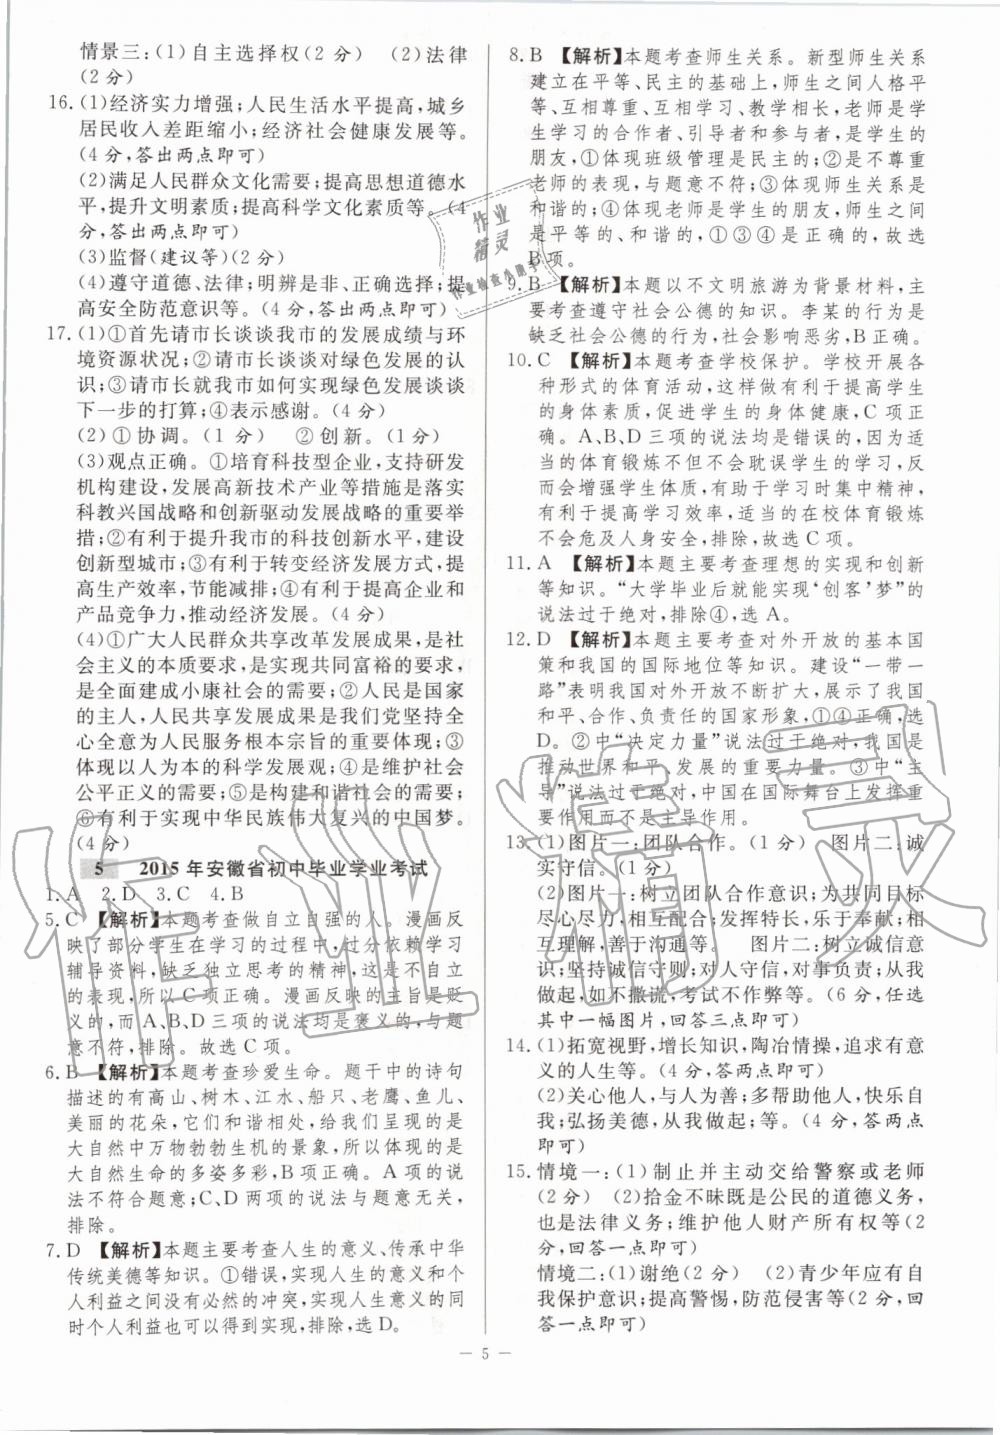 情景三:(1)自主选择权(2 分)　(2)法律
(2 分)
16.(1)经济实力增强;人民生活水平提高,城乡
居民收入差距缩小;经济社会健康发展等。
(4 分,答出两点即可)
(2)满足人民群众文化需要;提高思想道德水
平,提升文明素质;提高科学文化素质等。(4
分,答出两点即可)
(3)监督(建议等)(2 分)
(4)遵守道德、法律;明辨是非、正确选择;提
高安全防范意识等。(4 分,答出两点即可)
17.(1)①首先请市长谈谈我市的发展成绩与环
境资源状况;②请市长谈谈对绿色发展的认
识;③请市长就我市如何实现绿色发展谈谈
下一步的打算;④表示感谢。(4 分)
(2)①协调。(1 分)　②创新。(1 分)
(3)观点正确。①培育科技型企业,支持研发
机构建设,发展高新技术产业等措施是落实
科教兴国战略和创新驱动发展战略的重要举
措;②有利于提升我市的科技创新水平,建设
创新型城市;③有利于转变经济发展方式,提
高生产效率,节能减排;④有利于提高企业和
产品竞争力,推动经济发展。(4 分)
(4)①广大人民群众共享改革发展成果,是社
会主义的本质要求,是实现共同富裕的要求,
是全面建成小康社会的需要;②人民是国家
的主人,人民共享发展成果是我们党坚持全
心全意为人民服务根本宗旨的重要体现;③
体现以人为本的科学发展观;④是维护社会
公平正义的需要;⑤是构建和谐社会的需要;
⑥有利于实现中华民族伟大复兴的中国梦。
(4 分)
5　2015 年安徽省初中毕业学业考试
1.A　2.D　3.C　4.B
5.C　【解析】本题考查做自立自强的人。漫画反
映了部分学生在学习的过程中,过分依赖学习
辅导资料,缺乏独立思考的精神,这是不自立
的表现,所以 C 项正确。漫画反映的主旨是贬
义的,而 A、B、D 三项的说法均是褒义的,与题
意不符,排除。故选 C 项。
6.B　【解析】本题考查珍爱生命。题干中的诗句
描写的有高山、树木、江水、船只、老鹰、鱼儿、
美丽的花朵,它们和谐相处,给我们呈现的是
大自然中万物勃勃生机的景象,所以体现的是
大自然生命的多姿多彩,B 项正确。A 项的说
法不符合题意;C、D 两项的说法与题意无关,
排除。
7.D　【解析】本题主要考查人生的意义、传承中华
传统美德等知识。①错误,实现人生的意义和个
人利益之间没有必然的冲突,实现人生意义的同
时个人利益也可以得到实现,排除,选 D。
8.B　【解析】本题考查师生关系。新型师生关系
建立在平等、民主的基础上,师生之间人格平
等、互相尊重、互相学习、教学相长,老师是学
生学习的合作者、引导者和参与者,是学生的
朋友,①体现班级管理是民主的;②是不尊重
老师的表现,与题意不符;③体现师生关系是
和谐的;④体现老师是学生的朋友,师生关系
是平等的、和谐的,①③④是正确的,故选
B 项。
9.B　【解析】本题以不文明旅游为背景材料,主
要考查遵守社会公德的知识。李某的行为是
缺乏社会公德的行为,社会影响恶劣,B 正确。
10.C　【解析】本题考查学校保护。学校开展各
种形式的体育活动,这样做有利于提高学生
的身体素质,促进学生的身体健康,C 项正
确。A、B、D 三项的说法均是错误的,因为适
当的体育锻炼不但不会耽误学生的学习,反
而会增强学生体质,有助于学习时集中精神,
有利于提高学习效率,适当的在校体育锻炼
不会危及人身安全,排除,故选 C 项。
11.A　【解析】本题主要考查理想的实现和创新
等知识。“大学毕业后就能实现‘创客’梦”的
说法过于绝对,排除④,选 A。
12.D　【解析】本题主要考查对外开放的基本国
策和我国的国际地位等知识。建设“一带一
路”表明我国对外开放不断扩大,展示了我国
和平、合作、负责任的国家形象,①④正确,选
D。②中“决定力量”说法过于绝对,我国是
推动世界和平、发展的重要力量。③中“主
导”说法过于绝对,我国在国际舞台上发挥重
要作用而不是主导作用。
13.(1)图片一:团队合作。(1 分)　图片二:诚
实守信。(1 分)
(2)图片一:树立团队合作意识;为共同目标
尽心尽力,相互配合;发挥特长,乐于奉献;相
互理解,善于沟通等。　图片二:树立诚信意
识;坚持诚信守则;对人守信,对事负责;从我
做起,如不撒谎,考试不作弊等。(6 分,任选
其中一幅图片,回答三点即可)
14.(1)拓宽视野,增长知识,陶冶情操,追求有意
义的人生等。(4 分,答两点即可)
(2)关心他人,与人为善;多帮助他人,快乐自
我;弘扬美德,从我做起;等。(4 分,答两点
即可)
15.情境一:(1)制止并主动交给警察或老师
(2 分)　(2)拾金不昧既是公民的道德义务,
也是法律义务;维护他人财产所有权等(2
分,回答一点即可)
情境二:(1)谢绝(2 分)　(2)青少年应有自
我保护意识;提高警惕,防范侵害等(2 分,回
答一点即可)
— 5 —
作业
精灵
作业检查小助手
作业精灵